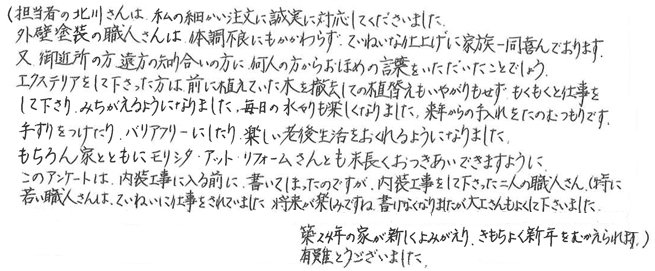 (担当者の北川さんは、私の細かい注文に誠実に対応してくださいました。
外壁塗装の職人さんは、体調不良にもかかわらず、ていねいな仕上げに家族一同喜んでおります。
又、御近所の方、遠方の知り合いの方に、何人の方からおほめの言葉をいただいたことでしょう。
エクステリアをして下さった方は、前に植えていた木を撤去しての植替えもいやがりもせず、もくもくと仕事を
して下さり、みちがえるようになりました。毎日の水やりも楽しくなりました。来年からの手入れをたのむつもりです。
手すりをつけたり、バリアフリーにしたり、楽しい老後生活をおくれるようになりました。
もちろん家とともにモリシタ・アット・リフォームさんとも末長くおつきあいできますように
このアンケートは、内装工事に入る前に、書いてしまったのですが、内装工事をして下さった二人の職人さん。(特に
若い職人さんは、ていねいに仕事をされていました 将来が楽しみですね。書けなくなりましたが大工さんもよくして下さいました。
築24年の家が新しくよみがえり、きもちよく新年をむかえられます。)
有難とうございました。